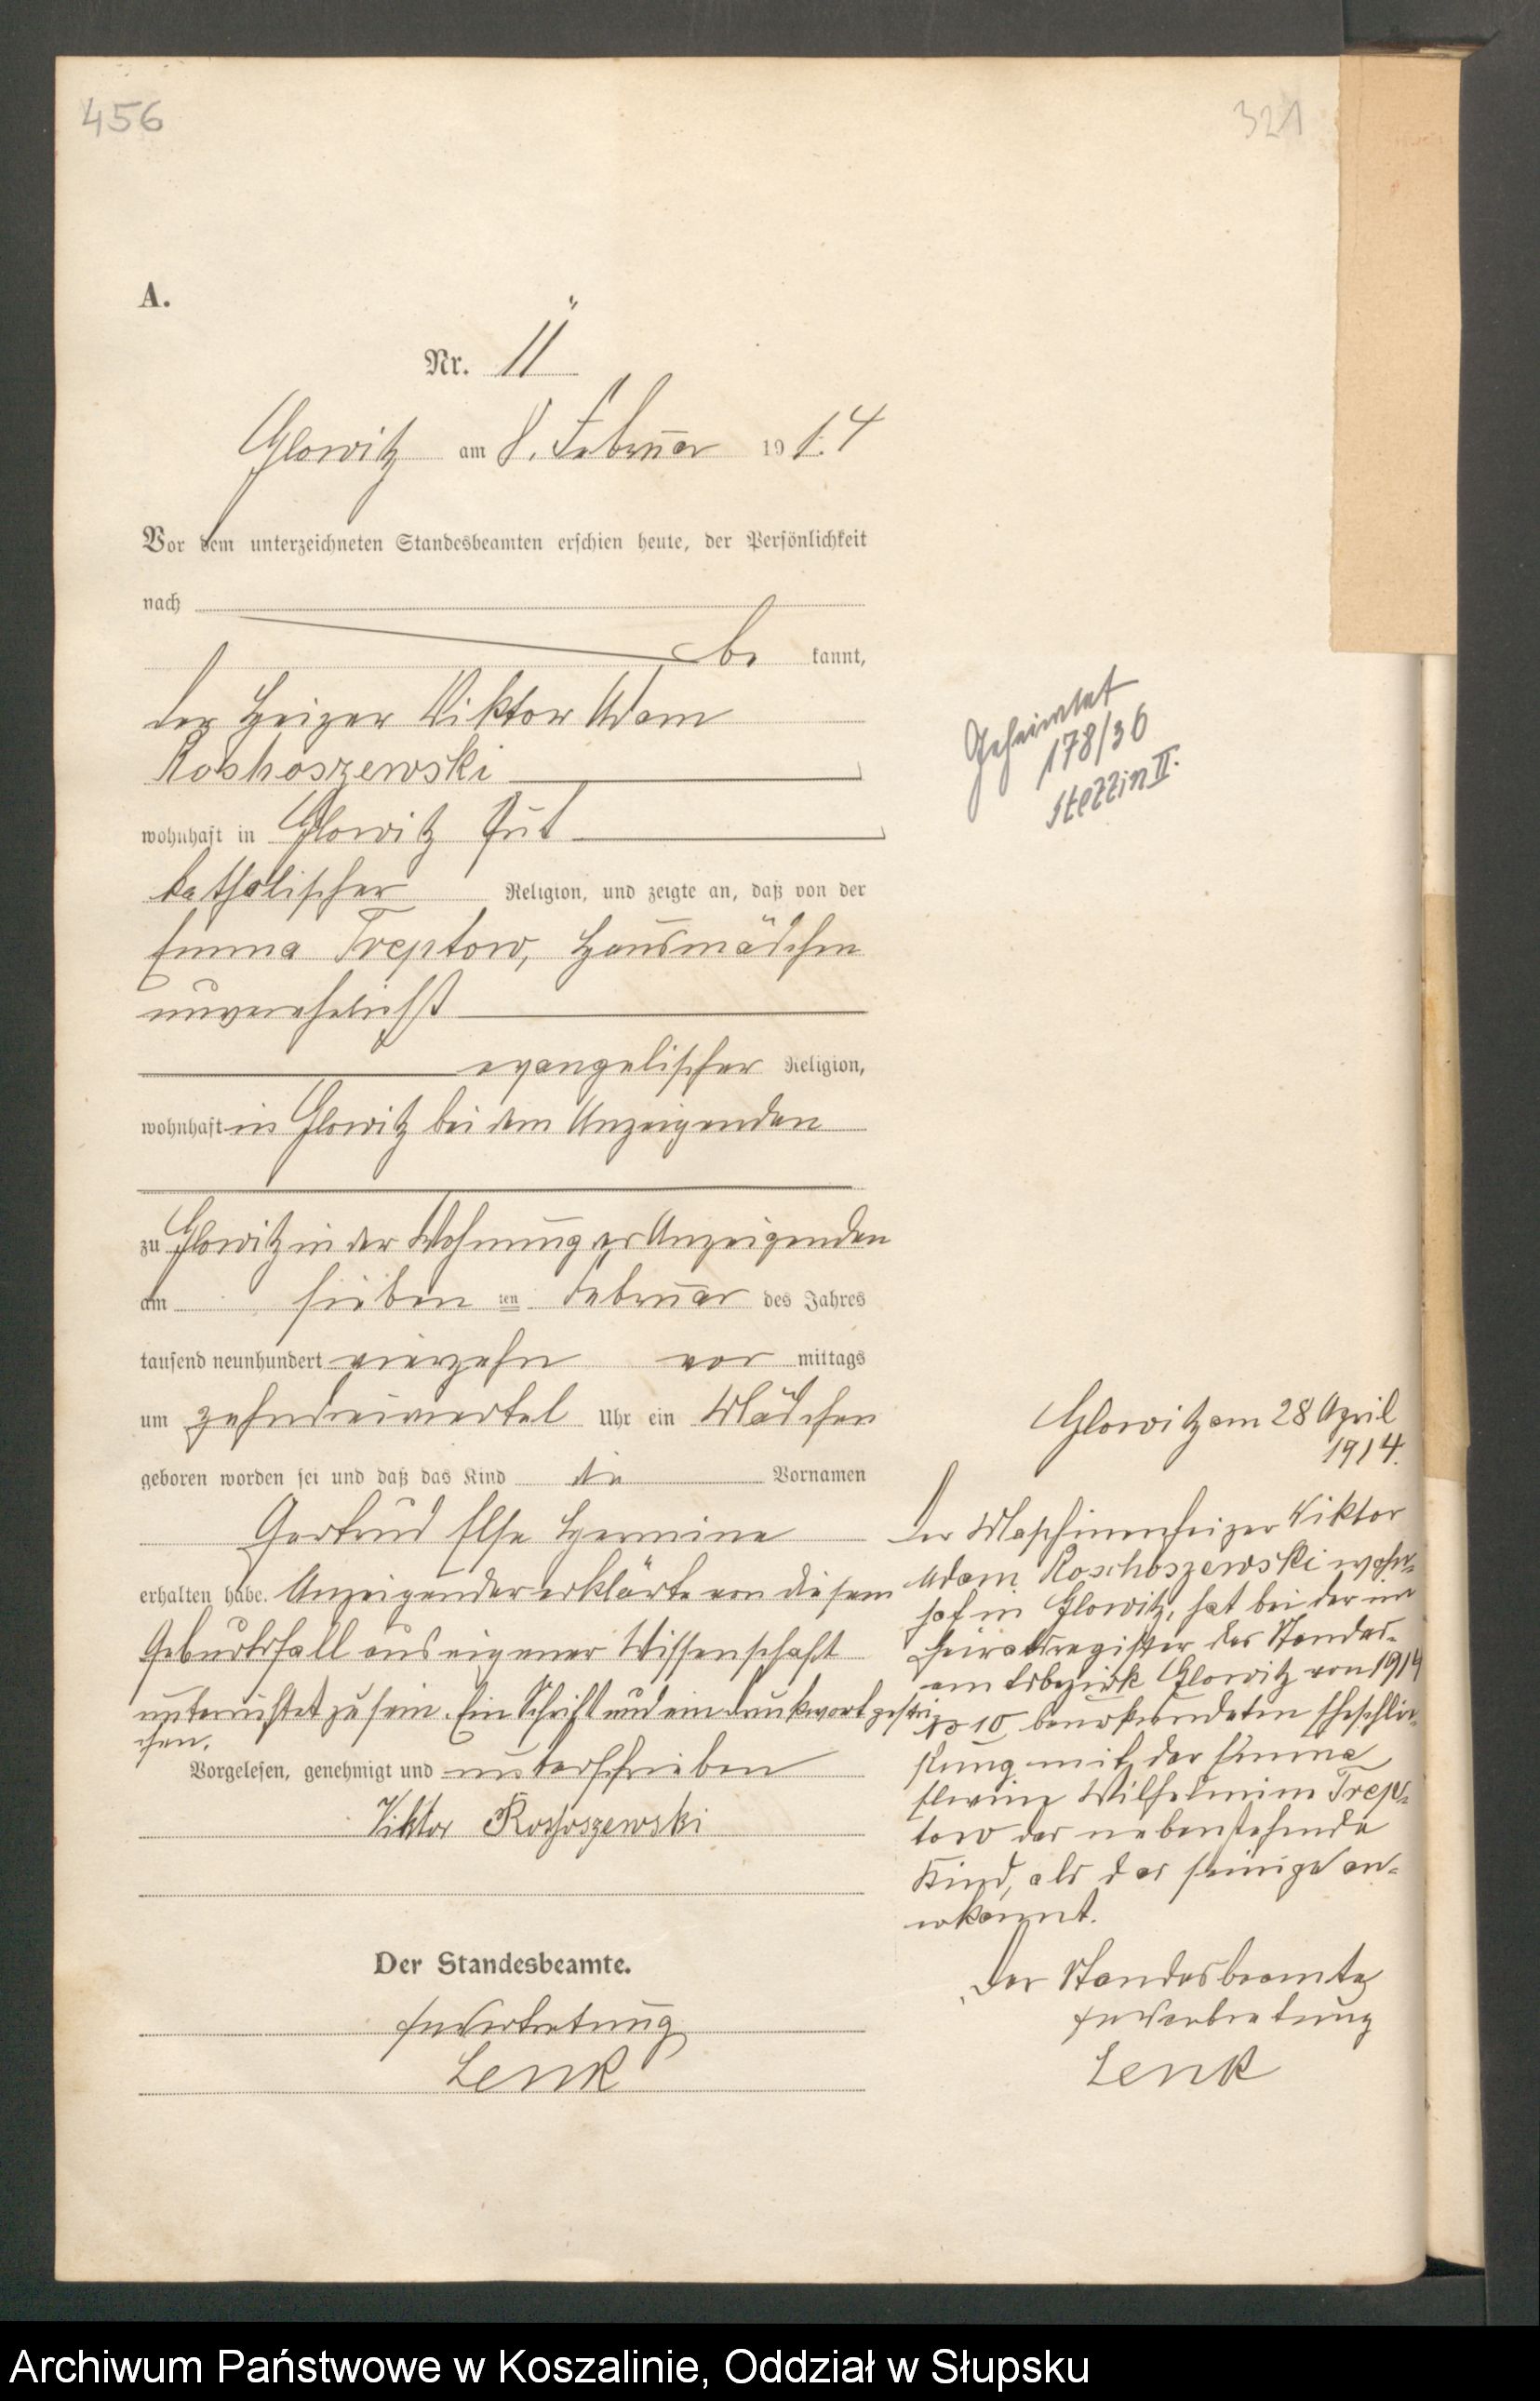 456
321
A.
Nr. 11
Glowitz am 8. Februar 1914
Vor dem unterzeichneten Standesbeamten erschien heute, der Persönlichkeit
nach
be kannt,
der Heizer Viktor Adam
Roshoszewski
wohnhaft in Glowitz Gut
katholischer Religion, und zeigte an, daß von der
Emma Treptow, Hausmädchen
unverehelicht
evangelischer Religion,
wohnhaft in Glowitz bei dem Anzeigenden
zu Glowitz in der Wohnung des Anzeigenden
am sieben ten Februar des Jahres
tausend neunhundert vierzehn vor mittags
um zehndreiviertel Uhr ein Mädchen
geboren worden sei und daß das Kind die Vornamen
Gertrud Else Hermine
erhalten habe. Anzeigender erklärte von diesem
Geburtsfall aus eigener Wissenschaft
unterrichtet zu sein. Ein Schrift und ein druckwort gestri-
chen.
Vorgelesen, genehmigt und unterschrieben
Viktor Roschoszewski
Der Standesbeamte.
In Vertretung
Lenk
Geheiratet
178/36
Stettin II.
Glowitz am 28 April
1914.
Der Maschinenheizer Viktor
Adam Roschoszewski wohn-
haft in Glowitz, hat bei der im
Heiratsregister des Standes-
amtsbezirk Glowitz von 1914
No 10 beurkundeten Eheschlie-
ßung mit der Emma
Wilhelmine Trep-
tow das nebenstehende
Kind, als das seinige an-
erkannt.
Der Standesbeamte
In Vertretung
Lenk
Archiwum Państwowe w Koszalinie, Oddział w Słupsku